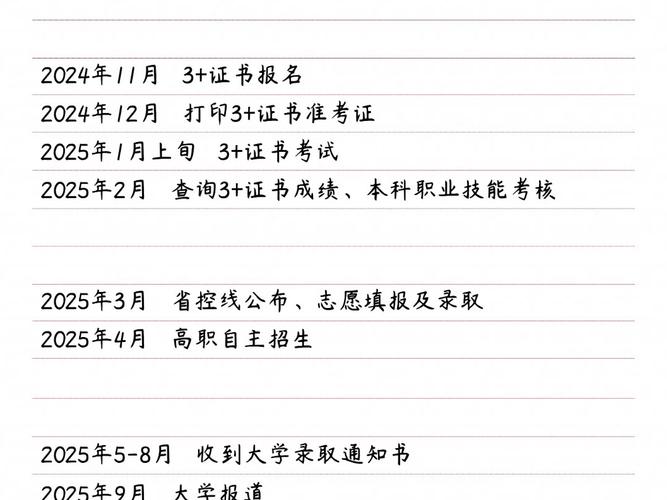 2024年11月 3+证书报名
2024年12月 打印3+证书准考证
2025年1月上旬 3+证书考试
2025年2月 查询3+证书成绩、本科职业技能考核
2025年3月 省控线公布、志愿填报及录取
2025年4月 高职自主招生
2025年5-8月 收到大学录取通知书
2025年9月 大学报道